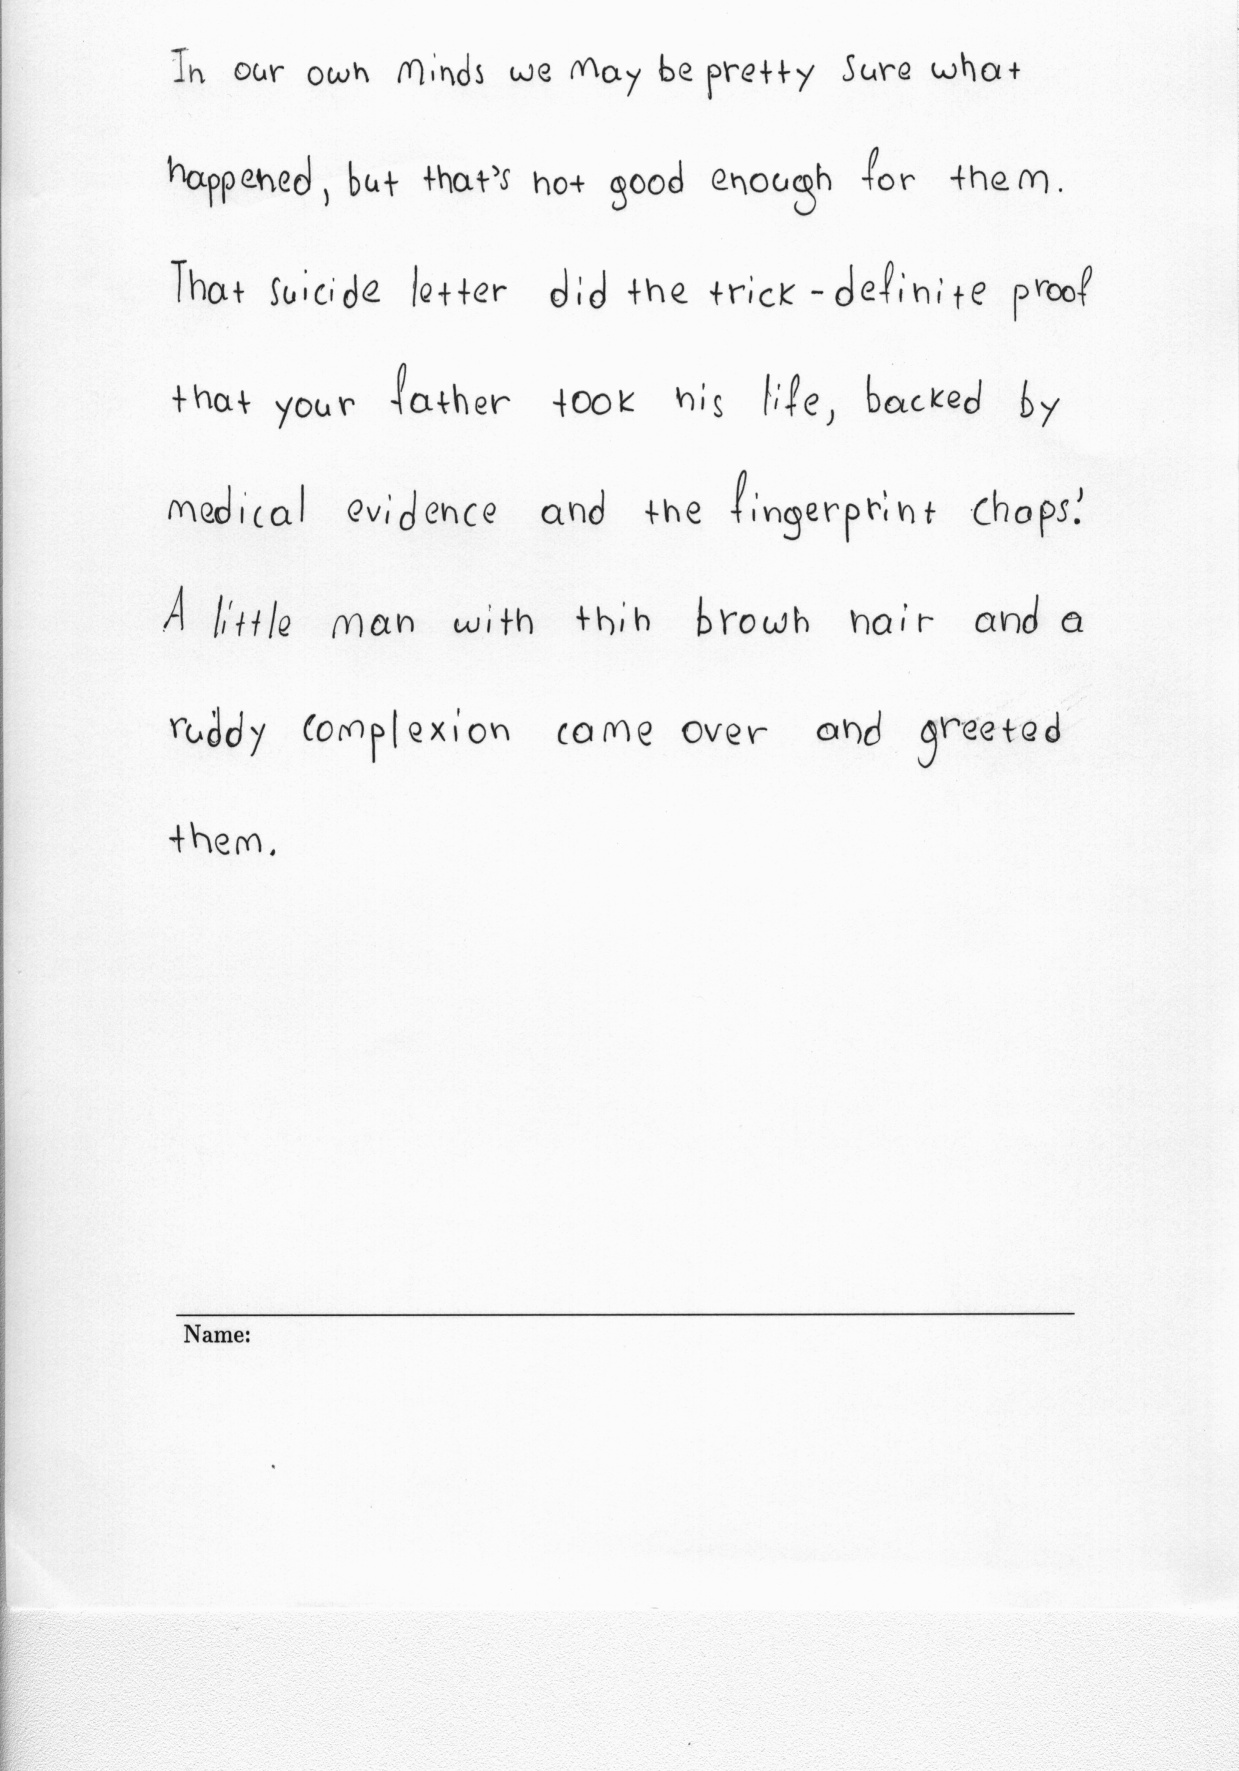 In our own minds we may be pretty sure what
happened, but that's not good enough for them.
That suicide letter did the trick - definite proof
that your father took his life, backed by
medical evidence and the fingerprint chaps.'
A little man with thin brown hair and a
ruddy complexion came over and greeted
them.
Name: